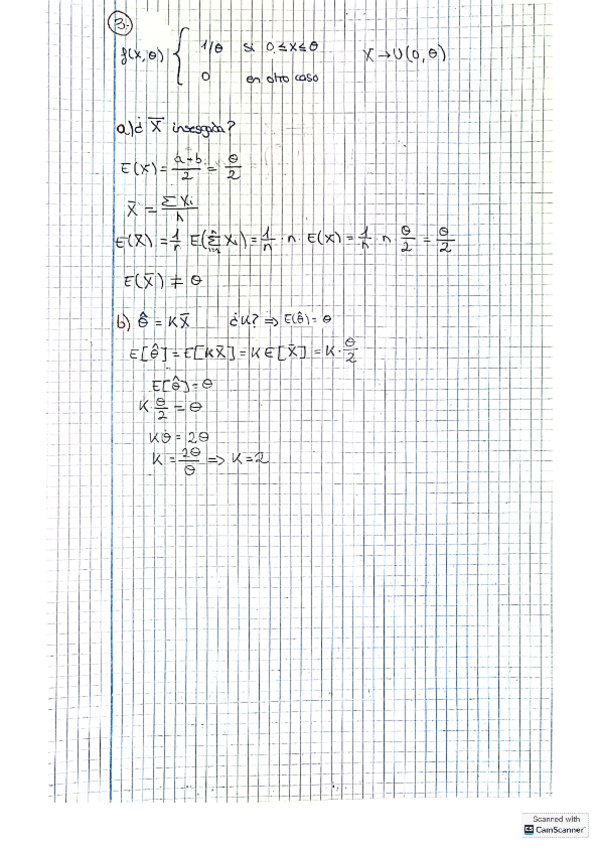 3.
f(x,θ) { 1/θ si 0≤x≤θ X→U(0,θ)
0 en otro caso
a) ¿ X̄ insesgado?
E(X) = a+b/2 = θ/2
X̄ = ΣXi/n
E(X̄) = 1/n E(Σⁿᵢ₌₁ Xi) = 1/n · n · E(X) = 1/n · n θ/2 = θ/2
E(X̄) ≠ θ
b) θ̂ = KX̄ ¿K? ⇒ E(θ̂) = θ
E[θ̂] = E[KX̄] = KE[X̄] = K · θ/2
E[θ̂] = θ
K · θ/2 = θ
Kθ = 2θ
K = 2θ/θ ⇒ K = 2
Scanned with
CS CamScanner